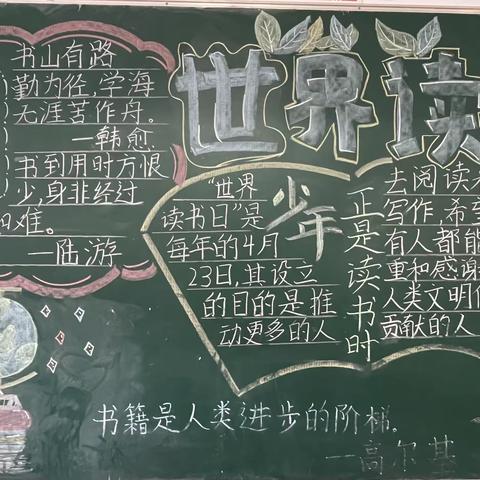 世界读
书山有路
勤为径,学海
无涯苦作舟。
—韩愈
书到用时方恨
少,身非经过
难。
—陆游
"世界
读书日"是
每年的4月
23日,其设立
的目的是推
动更多的人
少年
正是读书时
去阅读
写作,希
有人都能
重和感谢
人类文明
贡献的人
书籍是人类进步的阶梯。
—高尔基